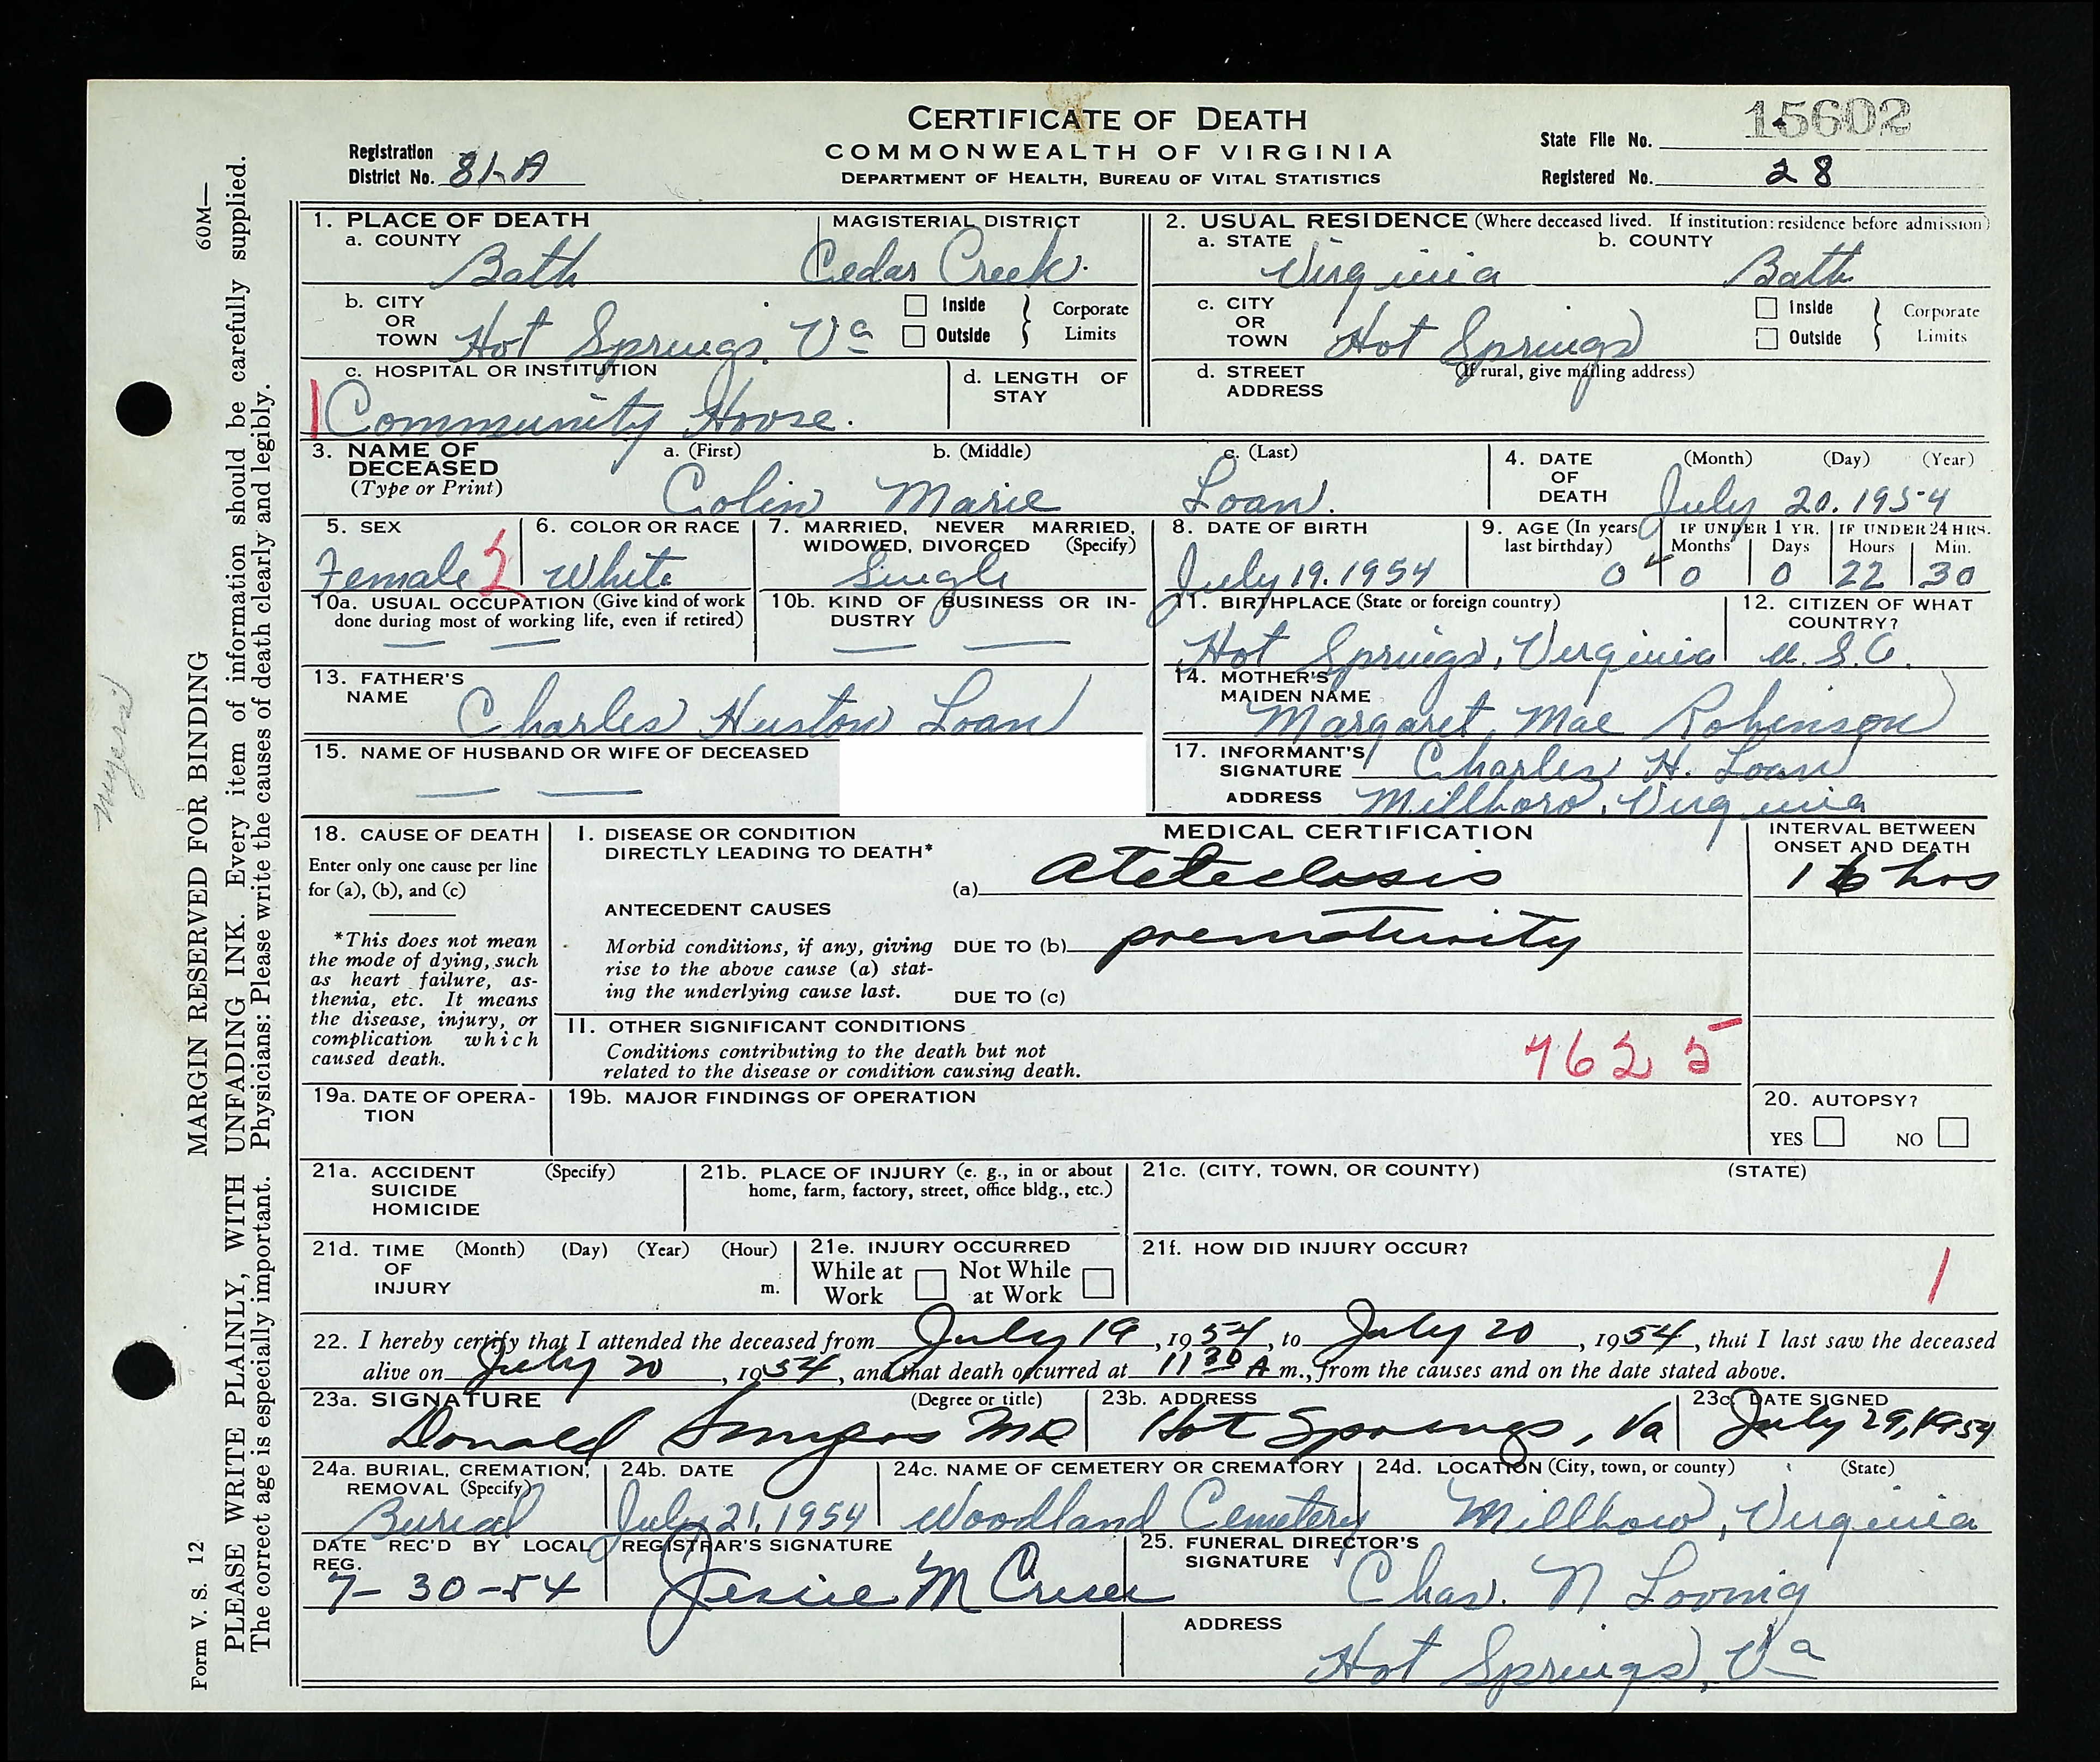 CERTIFICATE OF DEATH
COMMONWEALTH OF VIRGINIA
DEPARTMENT OF HEALTH, BUREAU OF VITAL STATISTICS
Registration District No. 81-A
State File No. 15602
Registered No. 28
60M—
MARGIN RESERVED FOR BINDING
PLEASE WRITE PLAINLY, WITH UNFADING INK. Every item of information should be carefully supplied.
The correct age is especially important. Physicians: Please write the causes of death clearly and legibly.
Form V. S. 12
Myers
1. PLACE OF DEATH
a. COUNTY Bath
MAGISTERIAL DISTRICT Cedar Creek.
2. USUAL RESIDENCE (Where deceased lived. If institution: residence before admission)
a. STATE Virginia
b. COUNTY Bath
b. CITY OR TOWN Hot Springs, Va
Inside Outside } Corporate Limits
c. CITY OR TOWN Hot Springs
Inside Outside } Corporate Limits
c. HOSPITAL OR INSTITUTION
1 Community House.
d. LENGTH OF STAY
d. STREET ADDRESS (If rural, give mailing address)
3. NAME OF DECEASED (Type or Print)
a. (First) b. (Middle) c. (Last)
Colin Marie Loan.
4. DATE OF DEATH (Month) (Day) (Year)
July 20. 1954
5. SEX
Female 2
6. COLOR OR RACE
White
7. MARRIED, NEVER MARRIED, WIDOWED, DIVORCED (Specify)
Single
8. DATE OF BIRTH
July 19. 1954
9. AGE (In years last birthday) 0
IF UNDER 1 YR. Months 0 Days 0
IF UNDER 24 HRS. Hours 22 Min. 30
10a. USUAL OCCUPATION (Give kind of work done during most of working life, even if retired)
— —
10b. KIND OF BUSINESS OR INDUSTRY
— —
11. BIRTHPLACE (State or foreign country)
Hot Springs, Virginia
12. CITIZEN OF WHAT COUNTRY?
U.S.A.
13. FATHER'S NAME
Charles Huston Loan
14. MOTHER'S MAIDEN NAME
Margaret Mae Robinson
15. NAME OF HUSBAND OR WIFE OF DECEASED
— —
17. INFORMANT'S SIGNATURE Charles H. Loan
ADDRESS Millboro, Virginia
18. CAUSE OF DEATH
Enter only one cause per line for (a), (b), and (c)
*This does not mean the mode of dying, such as heart failure, asthenia, etc. It means the disease, injury, or complication which caused death.
MEDICAL CERTIFICATION
I. DISEASE OR CONDITION DIRECTLY LEADING TO DEATH*
(a) Ateteclasis
INTERVAL BETWEEN ONSET AND DEATH
16 hrs
ANTECEDENT CAUSES
Morbid conditions, if any, giving rise to the above cause (a) stating the underlying cause last.
DUE TO (b) prematurity
DUE TO (c)
II. OTHER SIGNIFICANT CONDITIONS
Conditions contributing to the death but not related to the disease or condition causing death.
7625
19a. DATE OF OPERATION
19b. MAJOR FINDINGS OF OPERATION
20. AUTOPSY?
YES NO
21a. ACCIDENT SUICIDE HOMICIDE (Specify)
21b. PLACE OF INJURY (e. g., in or about home, farm, factory, street, office bldg., etc.)
21c. (CITY, TOWN, OR COUNTY) (STATE)
21d. TIME OF INJURY (Month) (Day) (Year) (Hour) m.
21e. INJURY OCCURRED
While at Work Not While at Work
21f. HOW DID INJURY OCCUR?
1
22. I hereby certify that I attended the deceased from July 19, 1954, to July 20, 1954, that I last saw the deceased
alive on July 20, 1954, and that death occurred at 11 30 A m., from the causes and on the date stated above.
23a. SIGNATURE (Degree or title)
Donald MD
23b. ADDRESS
Hot Springs, Va
23c. DATE SIGNED
July 29, 1954
24a. BURIAL, CREMATION, REMOVAL (Specify)
Burial
24b. DATE
July 21, 1954
24c. NAME OF CEMETERY OR CREMATORY
Woodland Cemetery
24d. LOCATION (City, town, or county) (State)
Millboro, Virginia
DATE REC'D BY LOCAL REG.
7-30-54
REGISTRAR'S SIGNATURE
25. FUNERAL DIRECTOR'S SIGNATURE
Chas. N Loving
ADDRESS
Hot Springs, Va